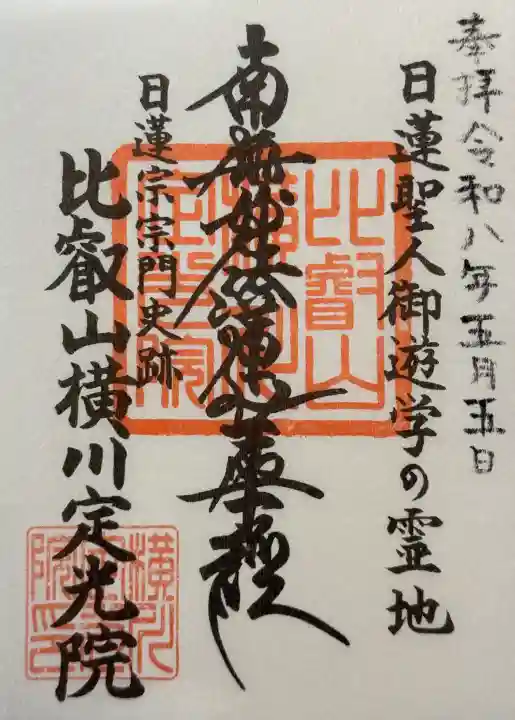 奉拝令和八年五月五日
日蓮聖人御遊学の霊地
南無妙法蓮華経
日蓮宗宗門史跡
比叡山横川定光院
比叡山
横川
定光院
横川
定光
院印